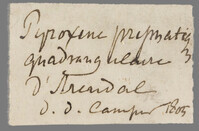 Pyroxene prismatiq
quadrangulaire
D'Arendal
d. d. Camper 1805